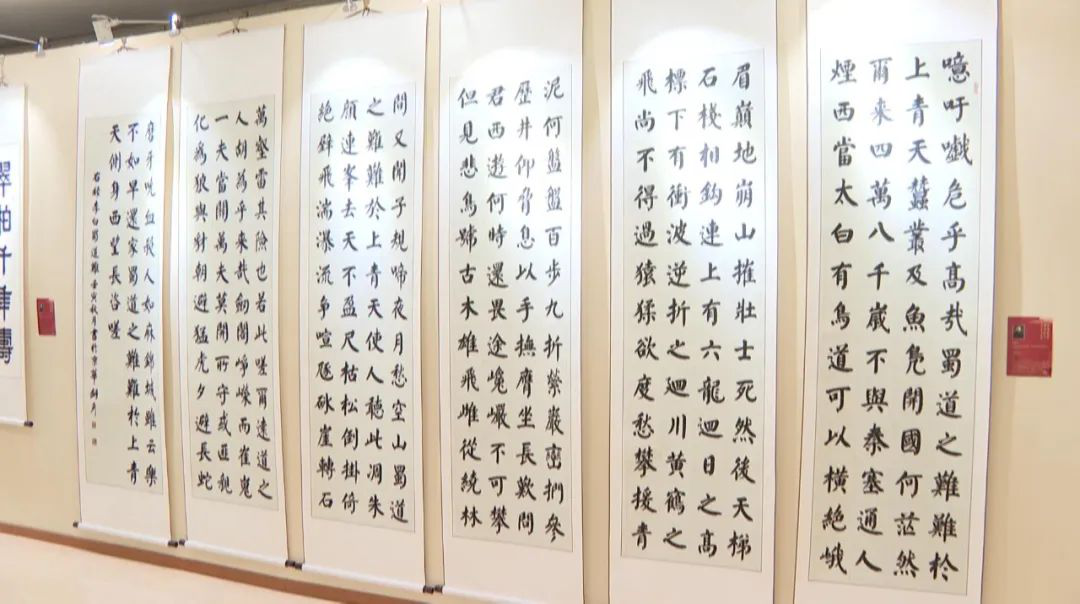 噫吁嚱危乎高哉蜀道之難難於
上青天蠶叢及魚鳧開國何茫然
爾來四萬八千歲不與秦塞通人
煙西當太白有鳥道可以橫絕峨
眉巔地崩山摧壯士死然後天梯
石棧相鈎連上有六龍迴日之高
標下有衝波逆折之迴川黃鶴之
飛尚不得過猿猱欲度愁攀援青
泥何盤盤百步九折縈巖巒捫參
歷井仰脅息以手撫膺坐長歎問
君西遊何時還畏途巉巖不可攀
但見悲鳥號古木雄飛雌從繞林
間又聞子規啼夜月愁空山蜀道
之難難於上青天使人聽此凋朱
顏連峯去天不盈尺枯松倒掛倚
絕壁飛湍瀑流爭喧豗砯崖轉石
萬壑雷其險也若此嗟爾遠道之
人胡為乎來哉劍閣崢嶸而崔嵬
一夫當關萬夫莫開所守或匪親
化為狼與豺朝避猛虎夕避長蛇
磨牙吮血殺人如麻錦城雖云樂
不如早還家蜀道之難難於上青
天側身西望長咨嗟
右錄李白蜀道難壬寅秋月書於京華
翠柏千年壽